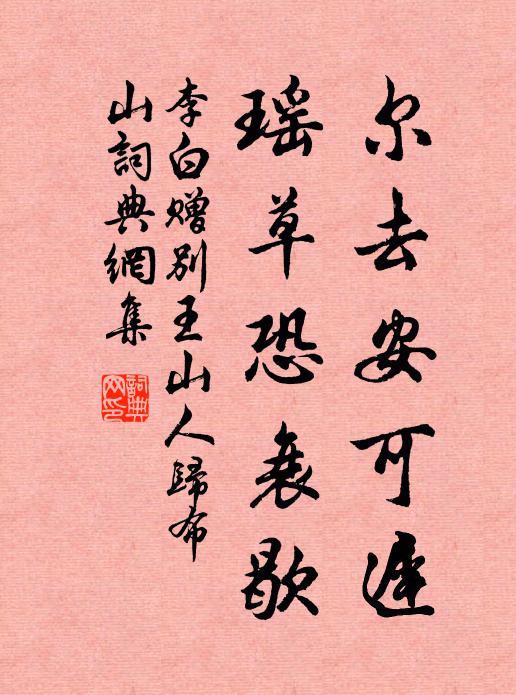 尔去安可遲
瑶草恐衰歇
李白赠别王山人歸布
山詞典網集
詞典
网印